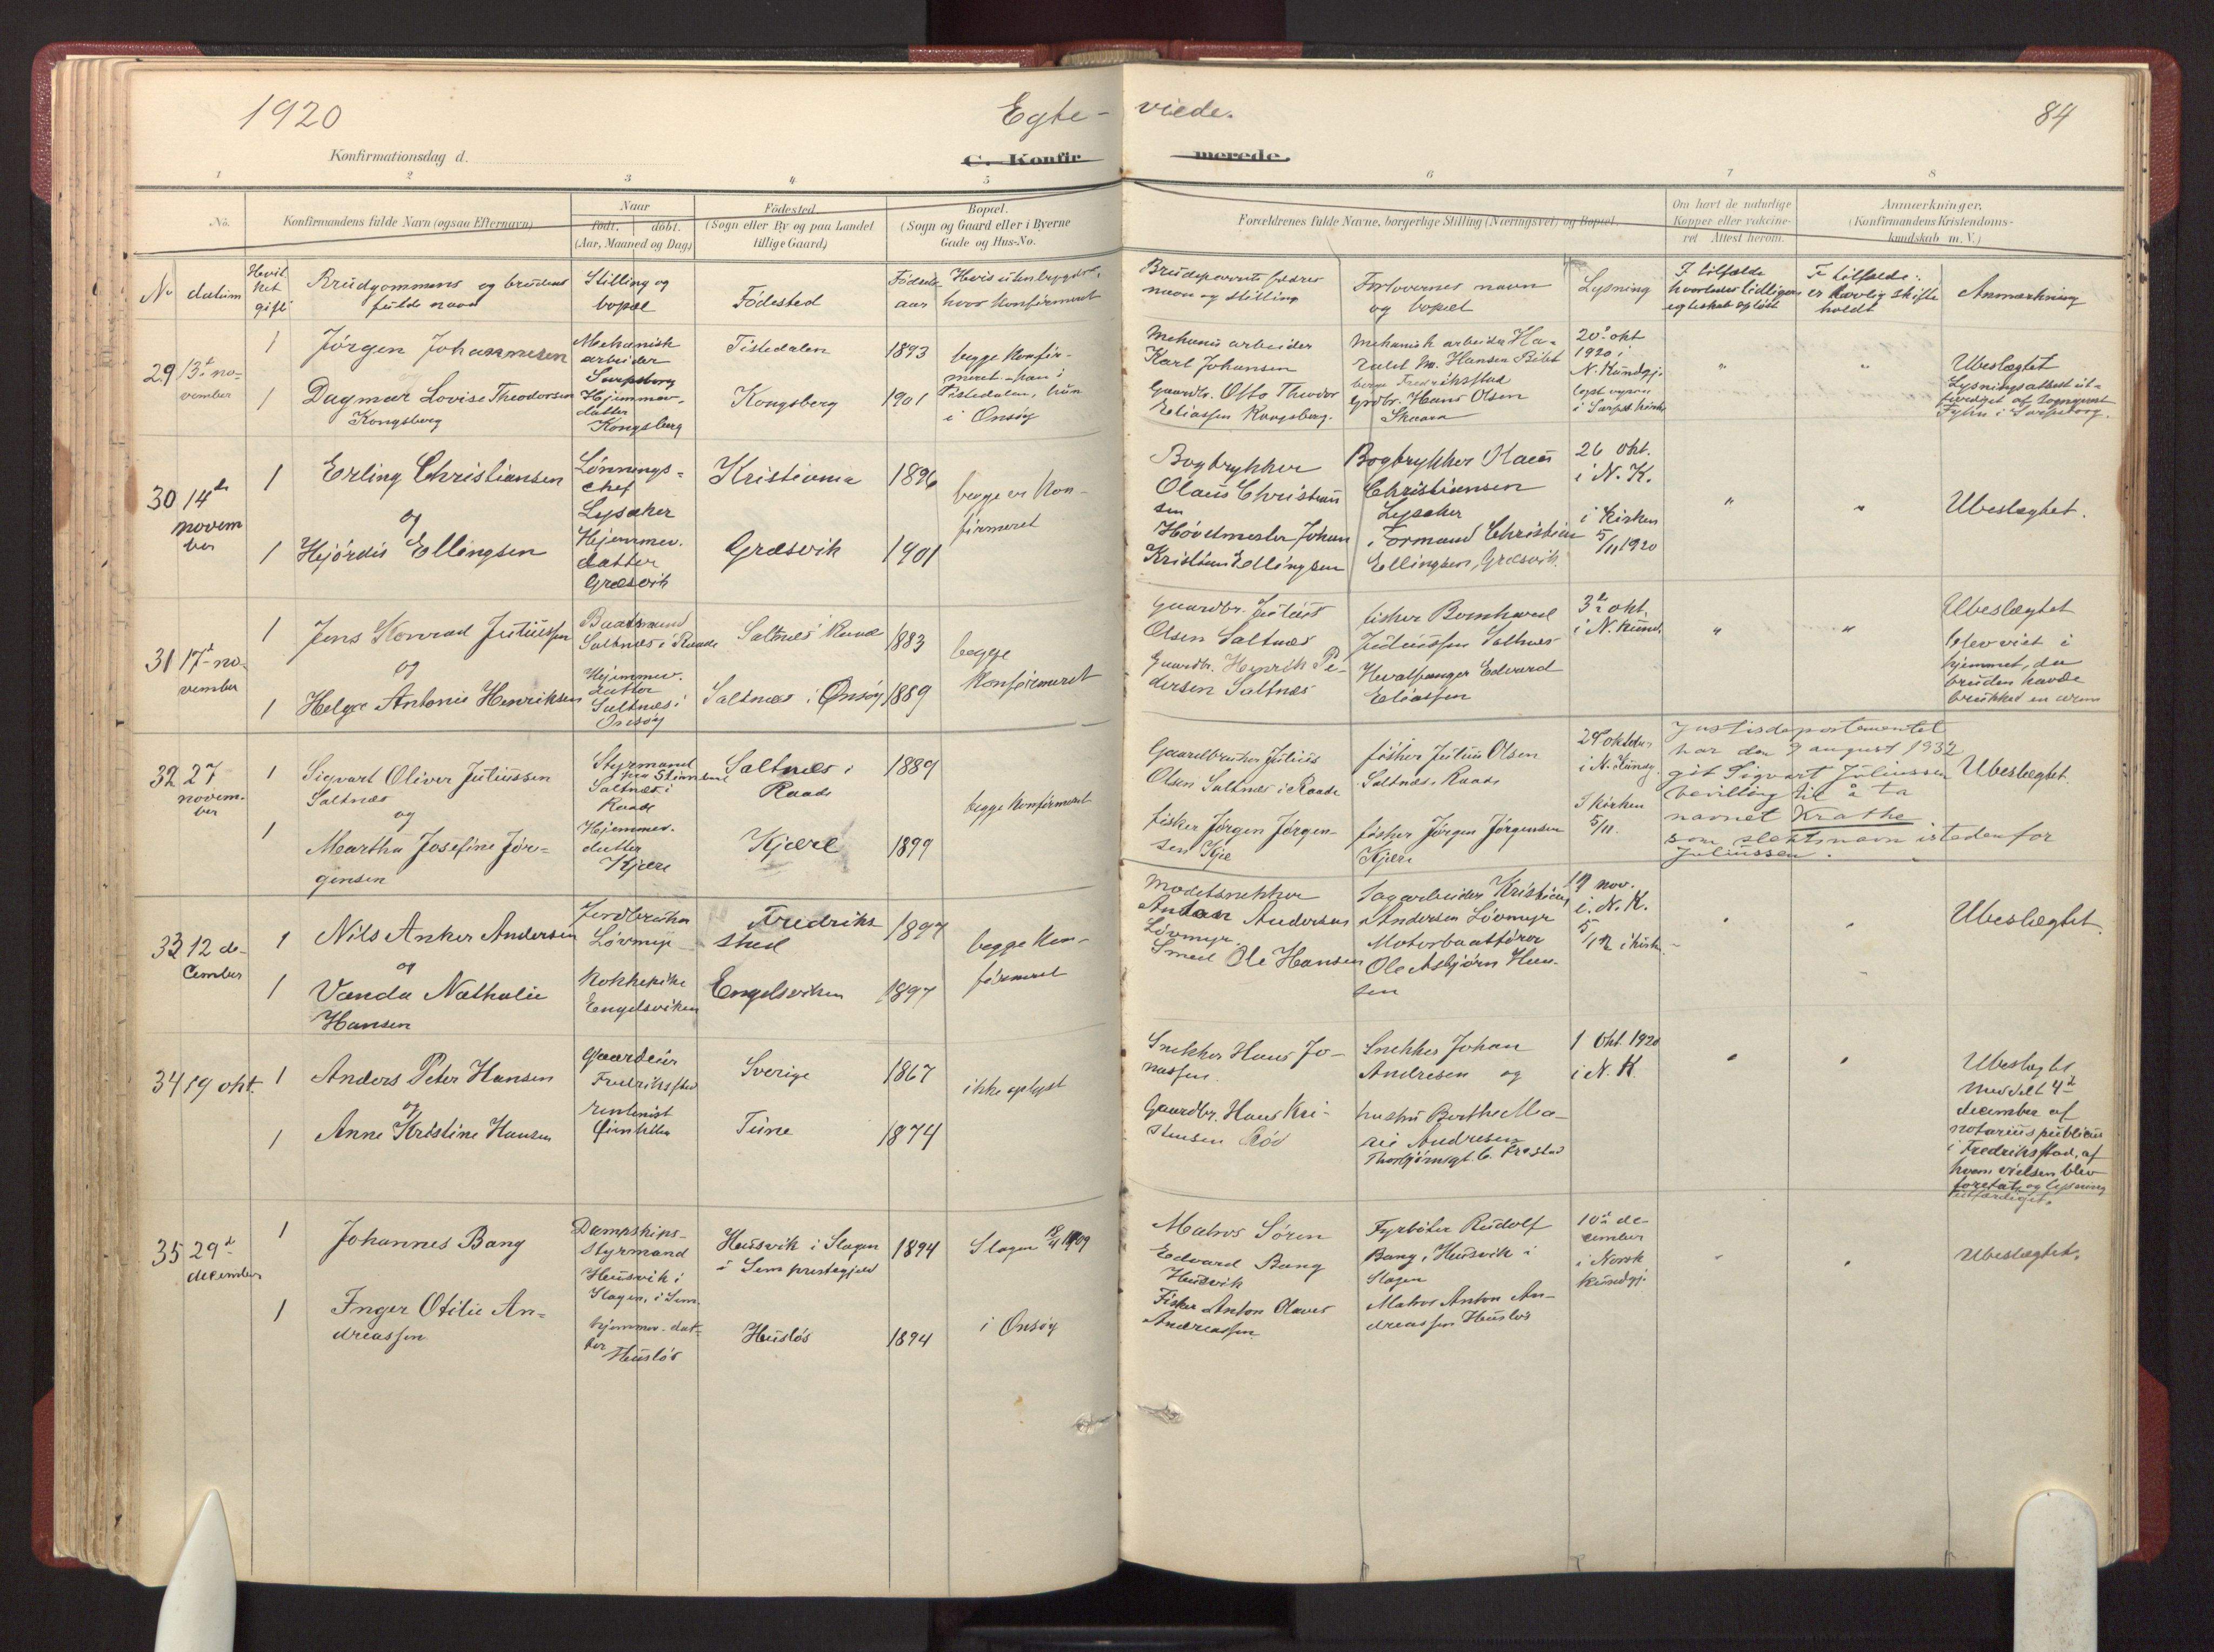 1920
Egte- viede.
84
Konfirmationsdag d.
C. Konfir merede.
1 2 3 4 5 6 7 8
No.
Konfirmandens fulde Navn (ogsaa Efternavn)
Naar
født. døbt.
(Aar, Maaned og Dag)
Fødested.
(Sogn eller By og paa Landet
tillige Gaard)
Bopæl.
(Sogn og Gaard eller i Byerne
Gade og Hus-No.
Forældrenes fulde Navne, borgerlige Stilling (Næringsvei) og Bopæl.
Om havt de naturlige
Kopper eller vaccine-
ret Attest herom.
Anmærkninger.
(Konfirmandens Kristendoms-
kundskab m. V.)
No datum
Hvit
ket
gift
Brudgommens og brudens
fulde navn
Stilling og
bopæl
Fødested
Fødsels
aar
Hvis utenbygds,
hvor konfirmert
Brudeparrets fædres
navn og stilling
Forlovernes navn
og bopæl
Lysning
I tilfælde
hvorledes tidligere
egteskab opløst
I tilfælde:
er lovlig skifte
holdt
Anmerkning
29 13de no-
vember
1 Jørgen Johannesen
Mechanisk
arbeider
Sarpsborg
Tistedalen
1893
1 Dagmar Lovise Theodorsen
Kongsberg
Hjemmev.
datter
Kongsberg
Kongsberg
1901
begge konfir-
meret. han i
Tistedalen, hun
i Onsøy
Mekanis arbeider
Karl Johansen
Gaardbr. Otto Theodor
Eliassen Kongsberg.
Mekanisk arbeider Ha-
rald M. Hansen
Fredriksstad
Grdbr. Hans Olsen
Skaara
20de okt
1920 i
N. Kundgj.
i Sarpsb kirke
Ubeslægtet
Lysningsattest ut-
færdiget af sogneprest
i Sarpsborg.
30 14de
novem
ber
1 Erling Christiansen
og
1 Hjørdis Ellingsen
Lønnings-
chef
Lysaker
Hjemmev.
datter
Græsvik
Kristiania
1896
Græsvik
1901
begge er kon-
firmeret
Bogtrykker
Olaus Christian
sen
Høvelmester Johan
Kristian Ellingsen
Bogtrykker Olaus
Christiansen
Lysaker
Formand Christian
Ellingsen, Græsvik.
26 okt.
i N. K.
i kirken
5/11 1920
Ubeslægtet.
31 17de no-
vember
1 Jens Konrad Juliussen
og
1 Helga Antonie Henriksen
Baatsmand
Saltnæs i Raade
Hjemmev.
datter
Saltnæs i
Onsøy
Saltnæs i Raade
1883
Saltnæs i Onsøy
1889
begge
konfirmeret
Gaardbr. Julius
Olsen Saltnæs
Gaardbr. Henrik Pe-
dersen Saltnæs
fisker Bernhard
Juliussen Saltnæs
Hvalfanger Edvard
Eliassen
3de okt.
i N. kund.
Ubeslægtet
blev viet i
hjemmet, da
bruden havde
brukket en arm
32 27
novem-
ber
1 Sigvart Oliver Juliussen
Saltnæs
og
1 Martha Josefine Jør-
gensen
Styrmand
Saltnæs i
Raade
Hjemmev.
datter
Kjære
Saltnæs i
Raade
1889
Kjære
1899
begge konfirmeret
Gaardbruker Julius
Olsen Saltnæs i Raade
fisker Jørgen Jørgen-
sen Kjæ
fisker Julius Olsen
Saltnæs, Raade
fisker Jørgen Jørgensen
Kjære
29de oktober
i N. Kundg.
I kirken
5/11.
Justisdepartementet
har den 9 august 1932
git Sigvart Juliussen
bevilling til å ta
navnet Krathe
som slektsnavn istedenfor
Juliussen.
Ubeslægtet.
33 12 de-
cember
1 Nils Anker Andersen
og
1 Vanda Nathalie
Hansen
Jordbruker
Løvmyr
Kokkepike
Engelsviken
Fredriks
stad
1897
Engelsviken
1897
begge kon-
firmeret
Modelsnekker
Anton Andersen
Løvmyr.
Smed Ole Hansen
Sagarbeider Kristian
Andersen Løvmyr
Motorbaatfører
Ole Asbjørn Han-
sen
19 nov.
i N. K.
5/12 i kirk.
Ubeslægtet.
34 19 okt.
1 Anders Peter Hansen
og
1 Anne Kristine Hansen
Gaardeier
Fredriksstad
rentenist
Sverige
1867
Tune
1874
ikke oplyst
Snekker Hans Jo-
nassen.
Gaardbr. Hans Kri-
stensen Rød
Snekker Johan
Andresen og
hustru Berthe Ma-
rie Andresen
Thorbjørnsgt. 6. Frestad
1 Okt 1920
i N. K.
Ubeslægtet
Meddelt 4de
december af
notarius publicus
i Fredriksstad, af
hvem vielsen blev
foretat, og lysning
utfærdiget.
35 29de
december
1 Johannes Bang
1 Inger Otilie An-
dreassen
Dampskips-
styrmand
Husvik i
Slagen, i Sem.
hjemmev. dat-
ter
Husløs
Husvik i Slagen
i Sem prestegjeld
1894
Husløs
1894
Slagen 18/4 1909
i Onsøy
Matros Søren
Edvard Bang
Husvik
Fisker Anton Olaves
Andreassen
Fyrbøter Rudolf
Bang, Husvik i
Slagen
Matros Anton An-
dreassen Husløs
10de de-
cember
i Norsk
kundgj.
Ubeslægtet.